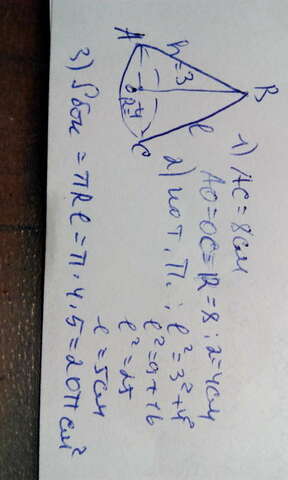 A
h=3
B
O
R=4
l
C
1) AC = 8см
AO=OC=R=8:2=4см
2) по т. П.: l²=3²+4²
l²=9+16
l²=25
l=5см
3) Sбок = πRl = π·4·5=20π см²